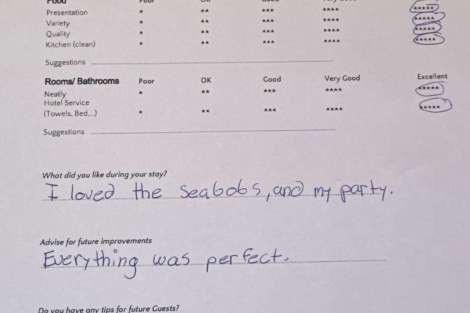 Food Poor OK Good Very Good
Presentation * ** *** **** *****
Variety * ** *** **** *****
Quality * ** *** **** *****
Kitchen (clean) * ** *** **** *****
Suggestions
Rooms/ Bathrooms Poor OK Good Very Good Excellent
Neatly * ** *** **** *****
Hotel Service
(Towels, Bed,..) * ** *** **** *****
Suggestions
What did you like during your stay?
I loved the seabobs, and my party.
Advise for future improvements
Everything was perfect.
Do you have any tips for future Guests?